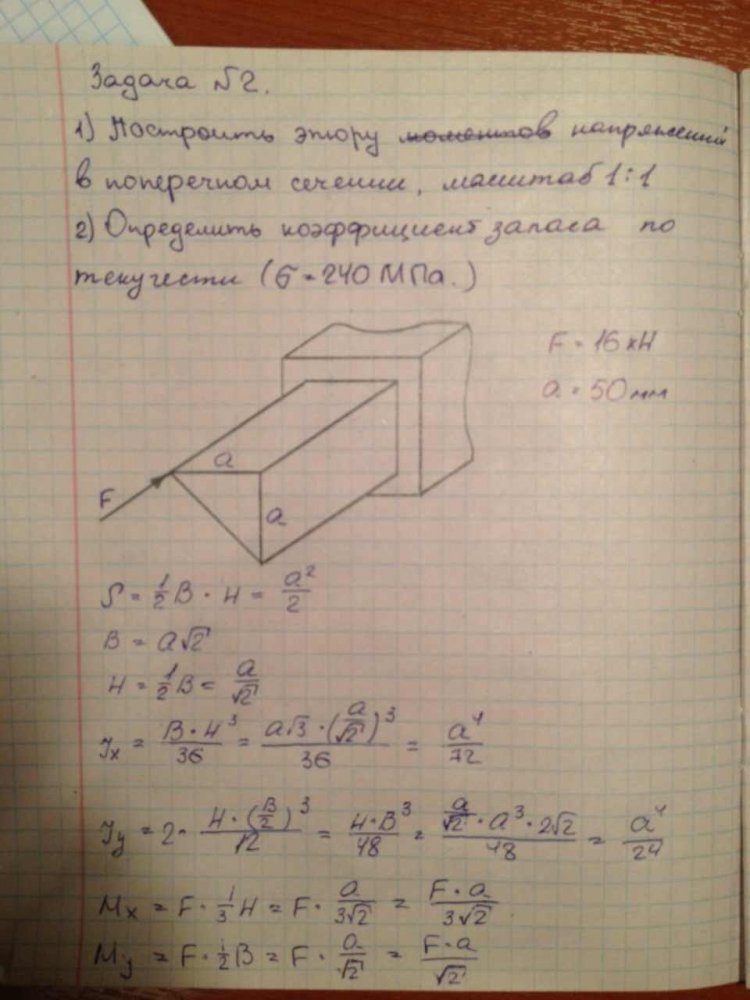 Задача №2.
1) Построить эпюру моментов напряжений
в поперечном сечении, масштаб 1:1
2) Определить коэффициент запаса по
текучести (σ = 240 МПа.)
F = 16 кН
a = 50 мм
a
F
a
S = 1/2 B · H = a²/2
B = a√2
H = 1/2 B = a/√2
Jx = B·H³/36 = a√3·(a/√2)³/36 = a⁴/72
Jy = 2· H·(B/2)³/12 = H·B³/48 = a/√2·a³·2√2/48 = a⁴/24
Mx = F · 1/3 H = F · a/3√2 = F·a/3√2
My = F · 1/2 B = F · a/√2 = F·a/√2